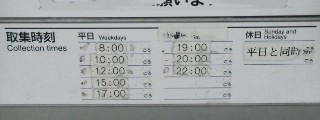 願いま
取集時刻
Collection times
平日 Weekdays
8:00
10:00
12:00
15:00
17:00
19:00
20:00
22:00
休日 Sunday and Holidays
平日と同時